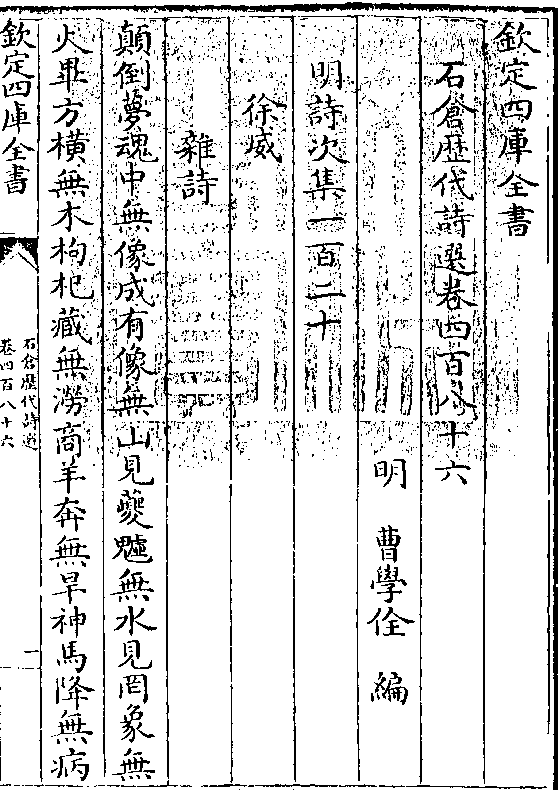 欽定四庫全書
石倉歴代詩選卷四百八十六
明 曹學佺 編
明詩次集一百二十
徐威
雜詩
顛倒夢魂中無像成有像無山見夔魖無水見罔象無
火畢方橫無木枸杞藏無澇商羊奔無旱神馬降無病
欽定四庫全書
石倉歷代詩選
卷四百八十六
一